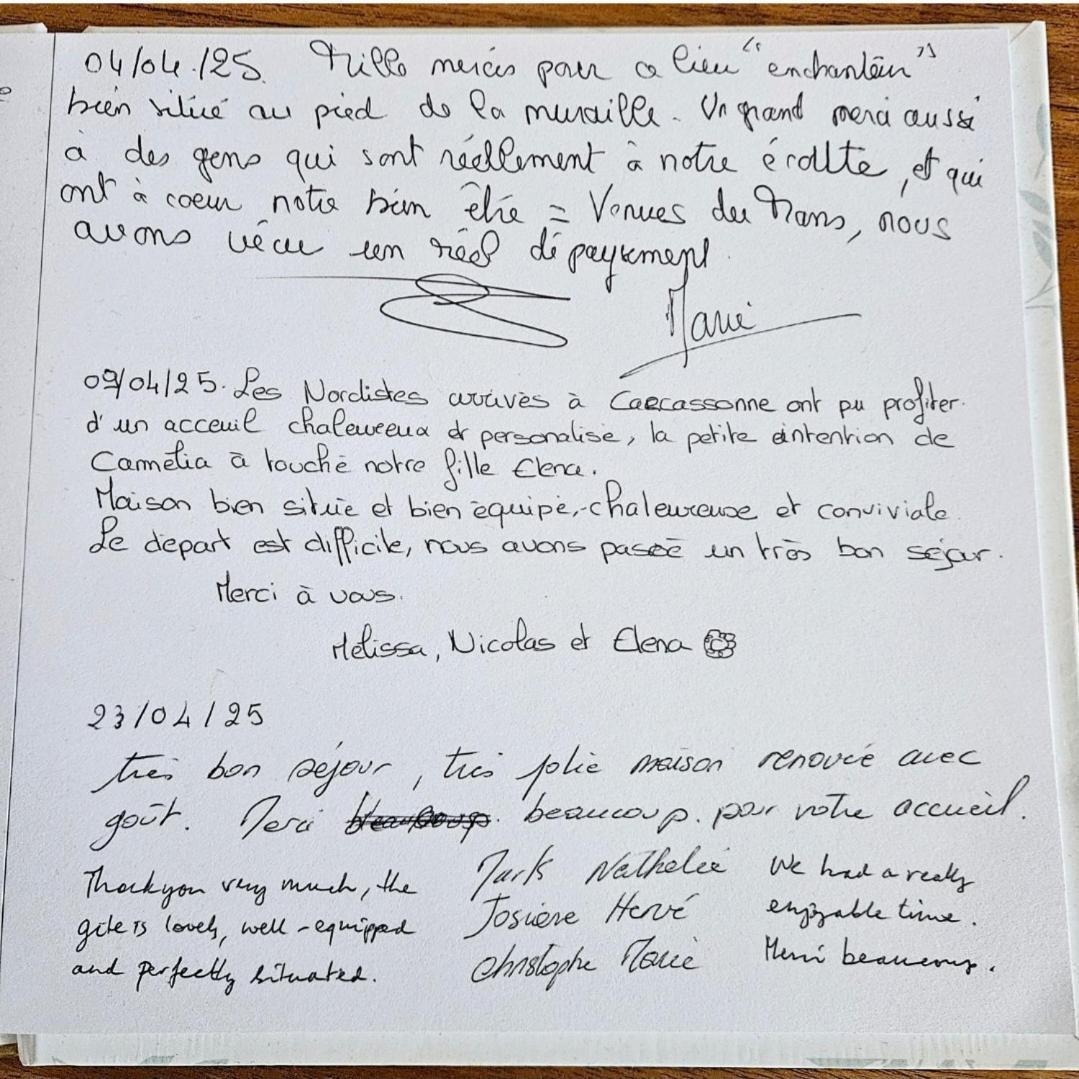 04/04/25. Mille mercis pour ce lieu "enchanteur"
bien situé au pied de la muraille. Un grand merci aussi
à des gens qui sont réellement à notre écoute, et qui
ont à coeur notre bien être = Venues du Mans, nous
avons vécu un réel dépaysement.
Marie
09/04/25. Les Nordistes arrivés à Carcassonne ont pu profiter
d'un acceuil chaleureux et personalisé, la petite aintention de
Camélia à touché notre fille Elena.
Maison bien situié et bien équipé, chaleureuse et conviviale.
Le départ est difficile, nous avons passé un très bon séjour.
Merci à vous.
Mélissa, Nicolas et Elena
23/04/25
très bon séjour, très jolie maison renovée avec
goût. Merci beaucoup. beaucoup. pour votre accueil.
Thankyou very much, the
gite is lovely, well-equipped
and perfectly situated.
Mark Nathalie
Josiane Hervé
Christophe Marie
We had a really
enjoyable time.
Merci beaucoup.